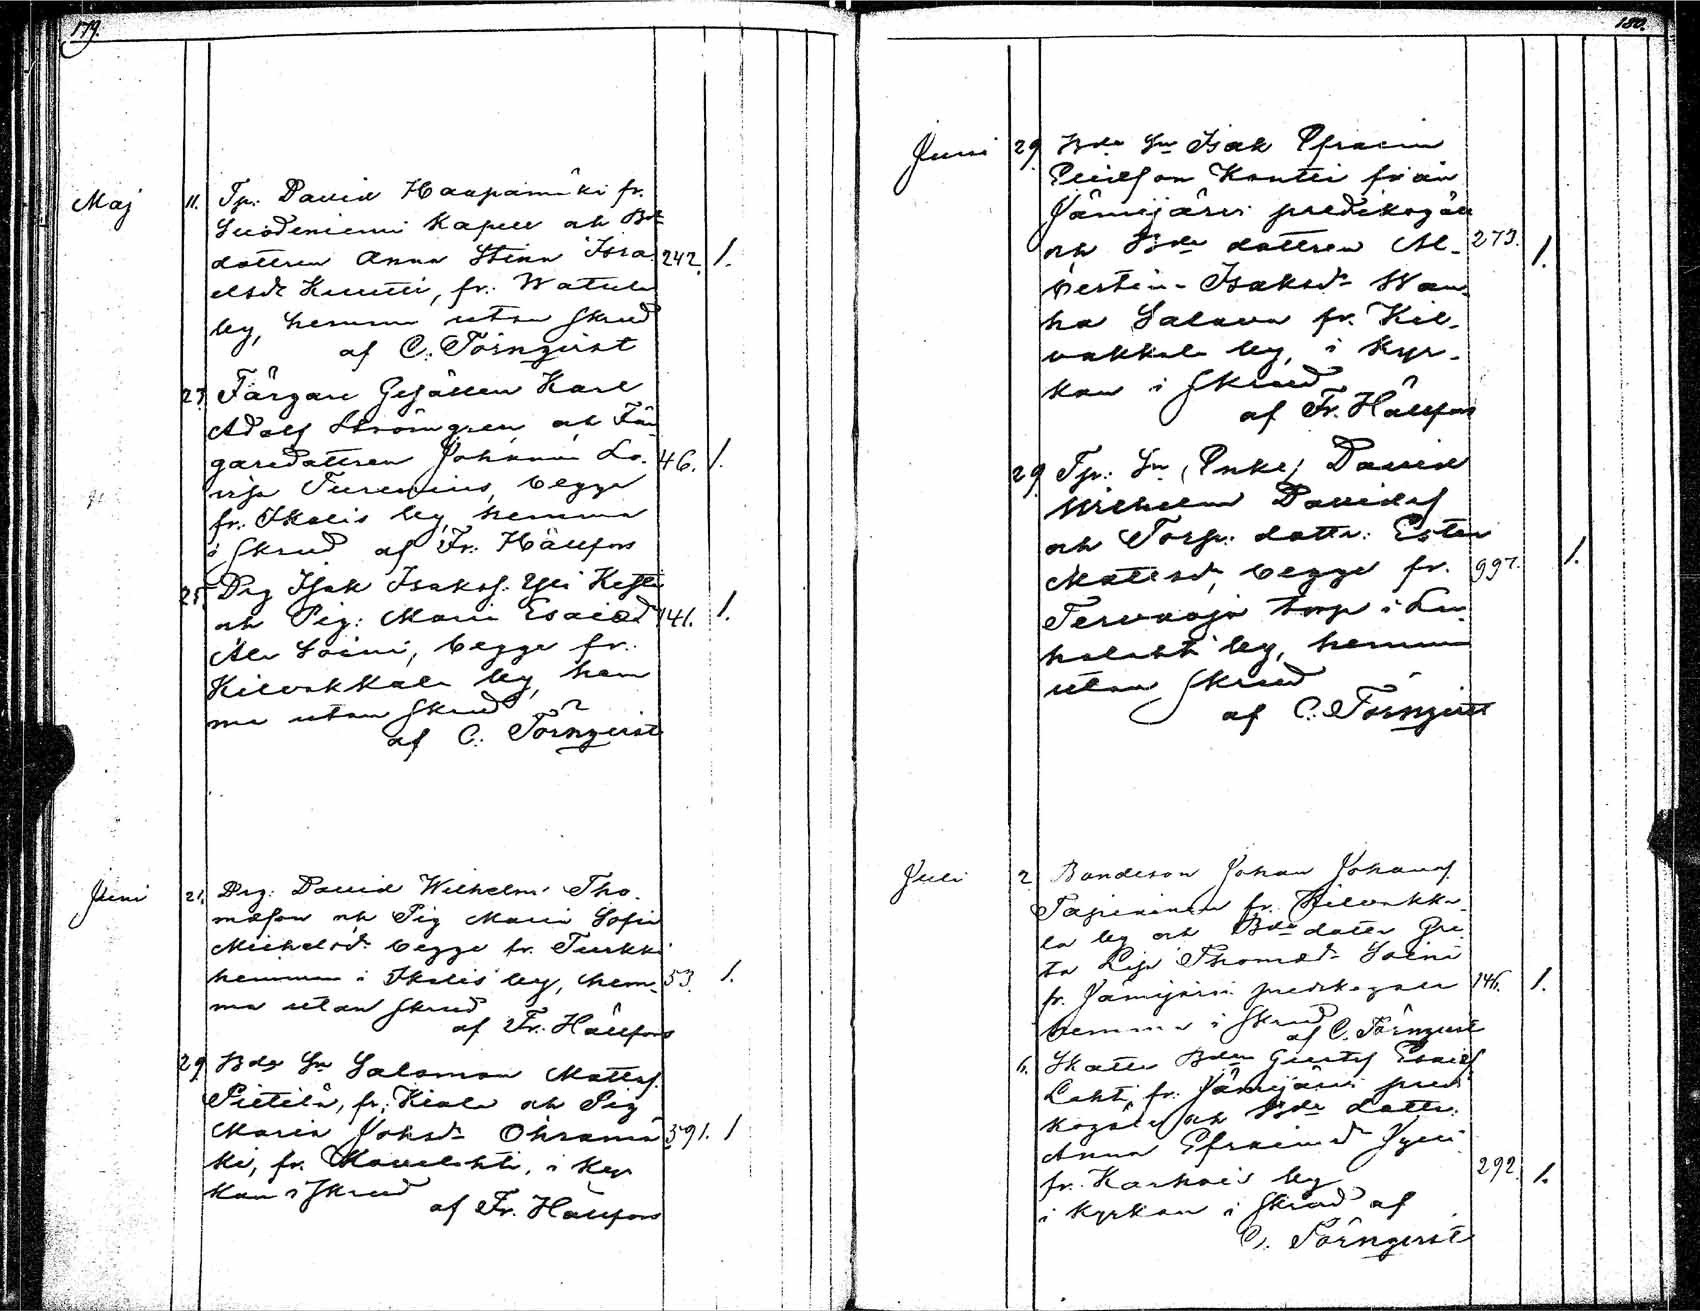 179.
Maj 11. Tp. David Haapamäki fr.
Suodeniemi Kapell och Bde
dottren Anna Stina Isra 242. 1.
elsdr Knutti, fr. Watula
by, hemma utan skrud
af C. Törnqvist
27. Färgare Gesällen Karl
Adolf Strömgren och Fär
garedottren Johanna Lo. 46. 1.
visa Turenius, begge
fr. Ikalis by, hemma
i skrud af Fr. Hällfors
28. Drg Isak Isakss. Yli Kesti
och Pig. Maria Esaiedr 141. 1.
Ala Soini, begge fr.
Kilvakkala by, hem
ma utan skrud
af C. Törnqvist
Juni 21. Drg: David Wilhelm Tho
masson och Pig Maria Sofia
Michelsdr begge fr. Turkki
hemman i Ikalis by, hem- 53. 1.
ma utan skrud
af Fr. Hällfors
29. Bde Sn Salomon Mattss.
Pietilä, fr. Kiala och Pig
Maria Johsdr Ohramä 391. 1
ki, fr. Kovelahti, i kyr
kan i skrud
af Fr. Hällfors
180.
Juni 29. Bde Sn Isak Efraim
Kontti från
Jämijärvi predikogäll
och Bde dottren Al- 273. 1.
bertina Isaksdr Wan
ha Salava fr. Kil-
vakkala by, i kyr-
kan i skrud
af Fr. Hällfors
29. Tp. Sn (Enkl) David
Wilhelm Davidss
och Torp. dottr. Ester
Mattsdr, begge fr. 997. 1.
Tervaoja torp i Lu
halahti by, hemma
utan skrud
af C. Törnqvist
Juli 2. Bondeson Johan Johanss.
Papinen fr. Kilvakka-
la by och Bde dotter Gre
ta Lisa Thomasdr Soini
fr. Jämijärvi predikogäll 146. 1.
hemma i skrud
af C. Törnqvist
6. Skatte Bden Gustaf Esaiss
Lahti, fr. Jämijärvi predi
kogäll och Bde dottr.
Anna Efraimsdr Jyllii
fr. Karhois by 292. 1.
i kyrkan i skrud af
C. Törnqvist